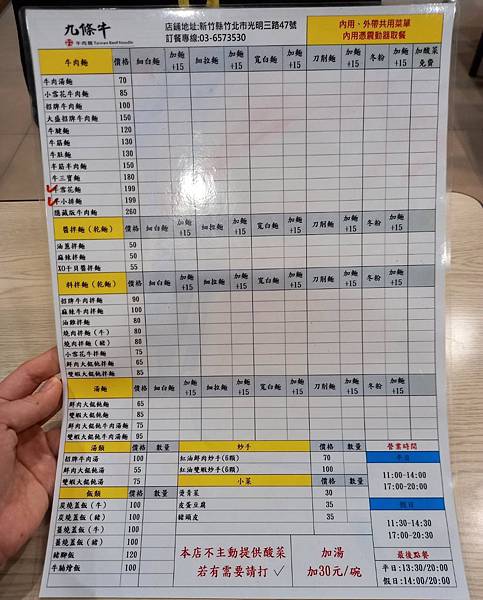 九條牛
牛肉麵 Taiwan Beef Noodle
店鋪地址:新竹縣竹北市光明三路47號
訂餐專線:03-6573530
內用、外帶共用菜單
內用憑震動器取餐
牛肉麵 價格 細白麵 加麵+15 細拉麵 加麵+15 寬白麵 加麵+15 刀削麵 加麵+15 冬粉 加麵+15 加酸菜免費
牛肉湯麵 70
小雪花牛肉麵 85
招牌牛肉麵 100
大盛招牌牛肉麵 150
牛腱麵 120
牛筋麵 130
牛肚麵 130
半筋半肉麵 150
牛三寶麵 180
牛雪花麵 199
牛小排麵 199
隱藏版牛肉麵 260
醬拌麵(乾麵) 價格 細白麵 加麵+15 細拉麵 加麵+15 寬白麵 加麵+15 刀削麵 加麵+15 冬粉 加麵+15
油蔥拌麵 50
麻辣拌麵 50
XO干貝醬拌麵 55
料拌麵(乾麵) 價格 細白麵 加麵+15 細拉麵 加麵+15 寬白麵 加麵+15 刀削麵 加麵+15 冬粉 加麵+15
招牌牛肉拌麵 90
麻辣牛肉拌麵 100
油雞拌麵 80
燒肉拌麵(牛) 80
燒肉拌麵(豬) 80
小雪花牛拌麵 75
鮮肉大餛飩拌麵 65
雙蝦大餛飩拌麵 85
湯麵 價格 細白麵 加麵+15 細拉麵 加麵+15 寬白麵 加麵+15 刀削麵 加麵+15 冬粉 加麵+15
鮮肉大餛飩麵 65
雙蝦大餛飩麵 85
鮮肉大餛飩牛肉湯麵 75
雙蝦大餛飩牛肉湯麵 95
湯類 價格 數量
招牌牛肉湯 100
鮮肉大餛飩湯 55
雙蝦大餛飩湯 75
飯類 價格 數量
炭燒蓋飯(牛) 100
炭燒蓋飯(豬) 100
薑燒蓋飯(牛) 100
薑燒蓋飯(豬) 100
豬腳飯 120
牛腩燴飯 100
炒手 價格 數量
紅油鮮肉炒手(6顆) 70
紅油雙蝦炒手(6顆) 100
小菜 價格 數量
燙青菜 30
皮蛋豆腐 35
豬頭皮 35
本店不主動提供酸菜
若有需要請打✓
加湯
加30元/碗
營業時間
平日
11:00-14:00
17:00-20:00
假日
11:30-14:30
17:00-20:30
最後點餐
平日:13:30/20:00
假日:14:00/20:00